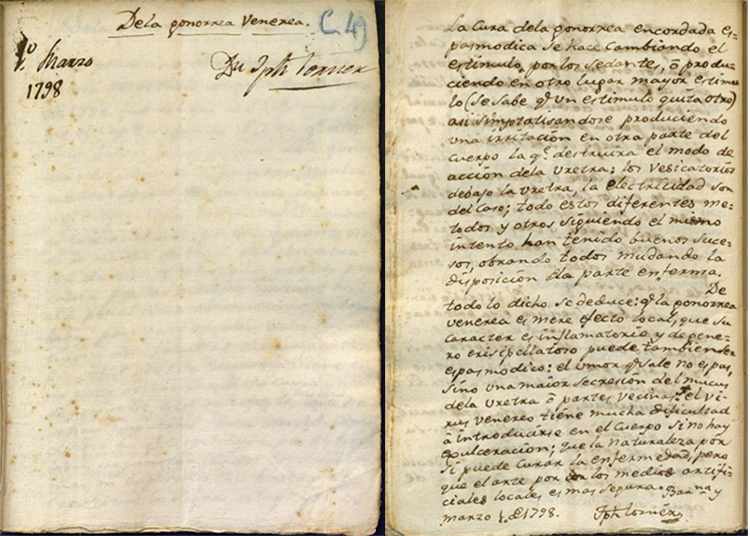 De la gonorrea Venerea.
C. 49
1.º Marzo
1798
Dn Jph Torner
La Cura dela gonorrea encordada es-
pasmodica se hace Cambiando el
estimulo, por los sedantes, ô produ-
ciendo en otro lugar mayor estimu-
lo (se sabe qe un estimulo quita otro)
asi simptatisandose produciendo
una irritación en otra parte del
Cuerpo la qe. destruira el modo de
acción dela uretra: los Vesicatorios
debajo la uretra, la electricidad son
del Caso; todo estos diferentes me-
todos y otros siguiendo el mismo
intento, han tenido buenos suce-
sos, obrando todos mudando la
disposición dla parte enferma.
De
todo lo dicho se deduce: qe la gonorrea
venerea es mere efecto local, que su
caracter es inflamatorio y de gene-
ro erisipellatoso puede tambien ser
espasmodico: el umor qe sale no es pus,
sino una maior secresión del mucus
dela uretra ô partes vecinas: el vi-
rus venereo tiene mucha dificultad
â introducirse en el Cuerpo si no hay
exulceracion; que la naturaleza por
si puede Curar la enfermedad, pero
que el arte por los medios artifi-
ciales locales es mas segura. Barna. y
marzo 1. d 1798. Jph Torner